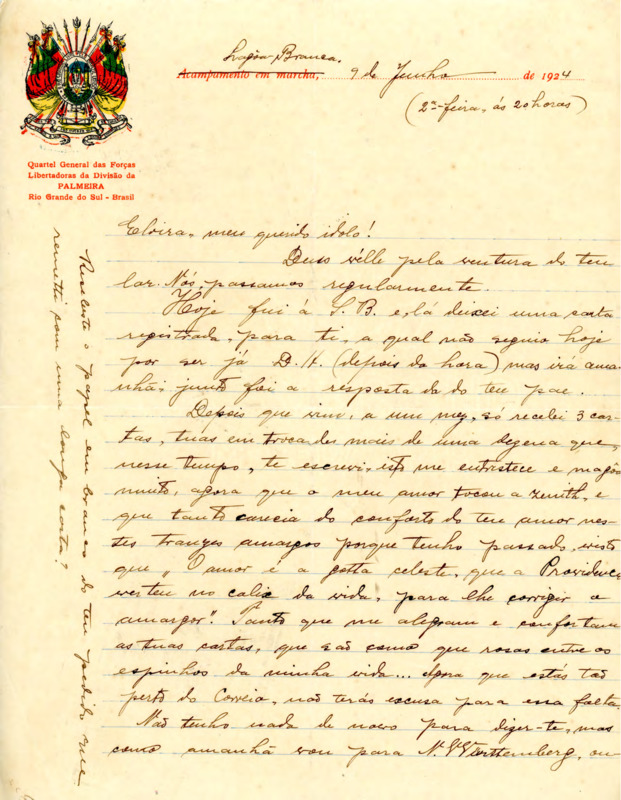 Lagôa Branca,
Acampamento em marcha, 9 de Junho de 1924
(2ª-feira, ás 20 horas)
Quartel General das Forças
Libertadoras da Divisão da
PALMEIRA
Rio Grande do Sul - Brasil
Eloira, meu querido idolo!
Deus vélle pela ventura do teu
lar. Nós, passamos regularmente.
Hoje fui á S. B. e, lá deixei uma carta
registrada, para ti, a qual não seguio hoje
por ser já D. H. (depois da hora) mas irá ama-
nhã; junto foi a resposta da do teu pae.
Depois que vim, a um mez, só recebi 3 car-
tas, tuas em troca de mais de uma dezena que,
nesse tempo, te escrevi, isto me entristece e magôa
muito, agora que o meu amor tocou a zenith, e
que tanto carecia do conforto do teu amor nes-
tes tranzes amargos porque tenho passado, visto
que "O amor é a gotta celeste, que a Providencia
verteu no calix da vida, para lhe corrigir o
amargor". Tanto que me alegram e confortam
as tuas cartas, que são como que rosas entre os
espinhos da minha vida... Agora que estás tão
perto do Correio, não terás escusa para essa falta.
Não tenho nada de novo para dizer-te, mas
como amanhã vou para N. Württemberg, ou
o papel em branco do teu pedido me
remetti com uma longa carta?